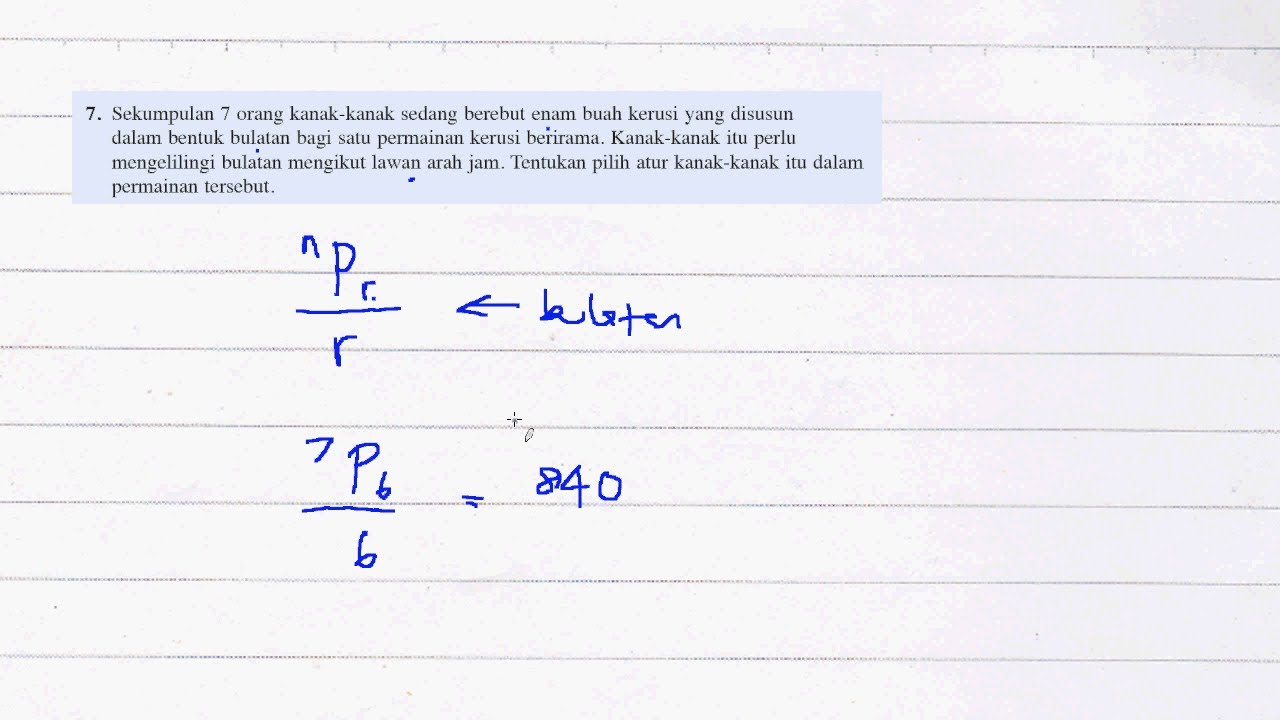 7. Sekumpulan 7 orang kanak-kanak sedang berebut enam buah kerusi yang disusun
dalam bentuk bulatan bagi satu permainan kerusi berirama. Kanak-kanak itu perlu
mengelilingi bulatan mengikut lawan arah jam. Tentukan pilih atur kanak-kanak itu dalam
permainan tersebut.
ⁿPᵣ
r
← bulatan
⁷P₆
6
= 840